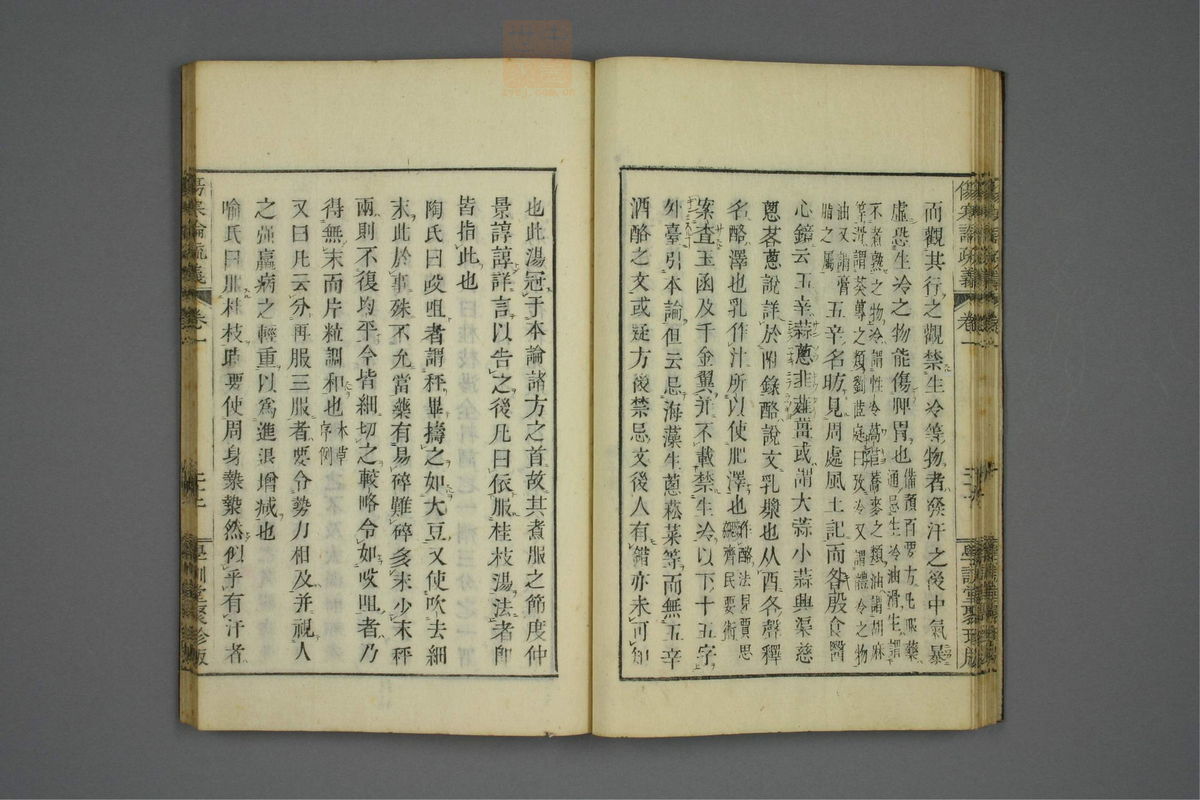 而觀其行之觀禁生冷等物者發汗之後中氣暴
虛恐生冷之物能傷脾胃也備預百要方凡服藥通忌生冷油滑生謂
不煮熟之物冷謂性冷萵苣蕎麥之類油謂胡麻
等滑謂葵蓴之類劉茝庭曰攷冷又謂醴冷之物
油又謂膏脂之屬五辛名昉見周處風土記而各殷食醫
心鏡云五辛蒜蔥韭薤薑或謂大蒜小蒜興渠慈
蔥茖蔥說詳於附錄酪說文乳漿也从酉各聲釋
名酪澤也乳作汁所以使肥澤也作酪法見賈思勰齊民要術
案查玉函及千金翼并不載禁生冷以下十五字
外臺引本論但云忌海藻生蔥菘菜等而無五辛
酒酪之文或疑方後禁忌文後人有錯亦未可知
也此湯冠于本論諸方之首故其煮服之節度仲
景諄諄詳言以告之後凡曰依服桂枝湯法者卽
皆指此也
陶氏曰㕮咀者謂秤畢擣之如大豆又使吹去細
末此於事殊不允當藥有易碎難碎多末少末秤
兩則不復均平今皆細切之較略令如㕮咀者乃
得無末而片粒調和也本草序例
又曰凡云分再服三服者要令勢力相及并視人
之强羸病之輕重以爲進退增減也
喻氏曰服桂枝時要使周身漐漐然似乎有汗者
傷寒論疏義
卷一
學訓堂聚珍版